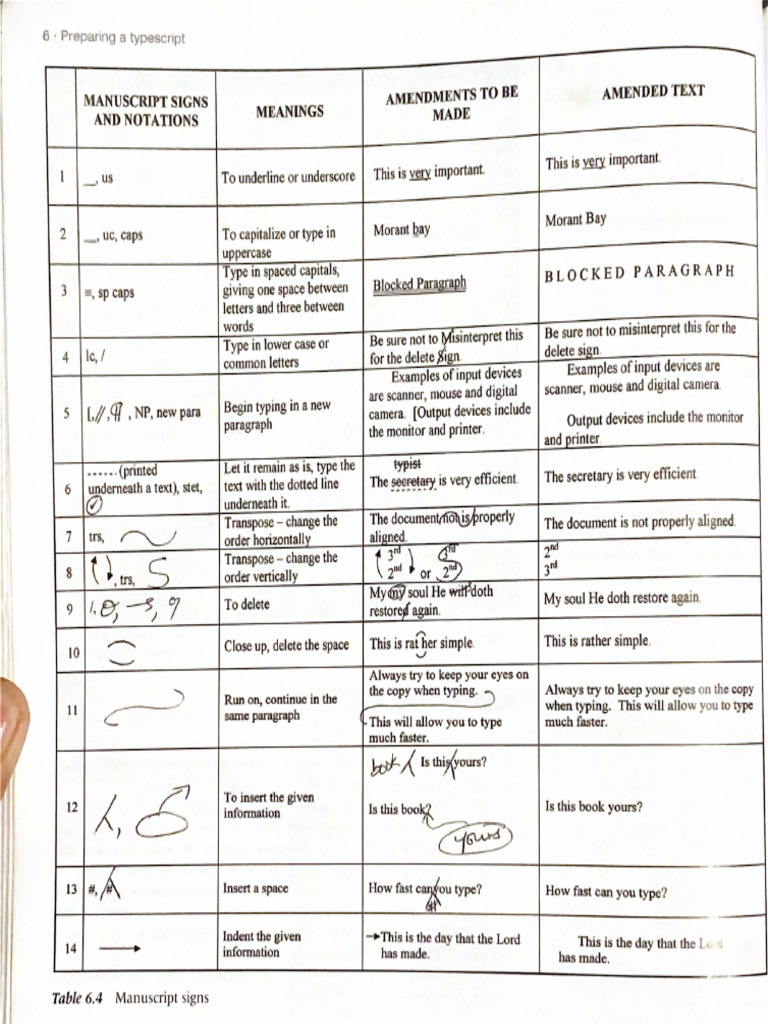 6 · Preparing a typescript
MANUSCRIPT SIGNS AND NOTATIONS
MEANINGS
AMENDMENTS TO BE MADE
AMENDED TEXT
1
__, us
To underline or underscore
This is very important.
This is very important.
2
__, uc, caps
To capitalize or type in
uppercase
Morant bay
Morant Bay
3
≡, sp caps
Type in spaced capitals,
giving one space between
letters and three between
words
Blocked Paragraph
BLOCKED PARAGRAPH
4
lc, /
Type in lower case or
common letters
Be sure not to Misinterpret this
for the delete Sign.
Be sure not to misinterpret this for the
delete sign.
5
[, //, ¶, NP, new para
Begin typing in a new
paragraph
Examples of input devices
are scanner, mouse and digital
camera. [Output devices include
the monitor and printer.
Examples of input devices are
scanner, mouse and digital camera.
Output devices include the monitor
and printer.
6
...... (printed
underneath a text), stet,
✓
Let it remain as is, type the
text with the dotted line
underneath it.
typist
The secretary is very efficient.
The secretary is very efficient.
7
trs,
Transpose – change the
order horizontally
The document not is properly
aligned.
The document is not properly aligned.
8
, trs,
Transpose – change the
order vertically
3rd 3rd
2nd or 2nd
2nd
3rd
9
To delete
My my soul He will doth
restored again.
My soul He doth restore again.
10
Close up, delete the space
This is rat her simple.
This is rather simple.
11
Run on, continue in the
same paragraph
Always try to keep your eyes on
the copy when typing.
This will allow you to type
much faster.
Always try to keep your eyes on the copy
when typing. This will allow you to type
much faster.
12
To insert the given
information
book Is this yours?
Is this book?
yours
Is this book yours?
13
#, #
Insert a space
How fast canyou type?
#
How fast can you type?
14
→
Indent the given
information
→This is the day that the Lord
has made.
This is the day that the Lord
has made.
Table 6.4 Manuscript signs